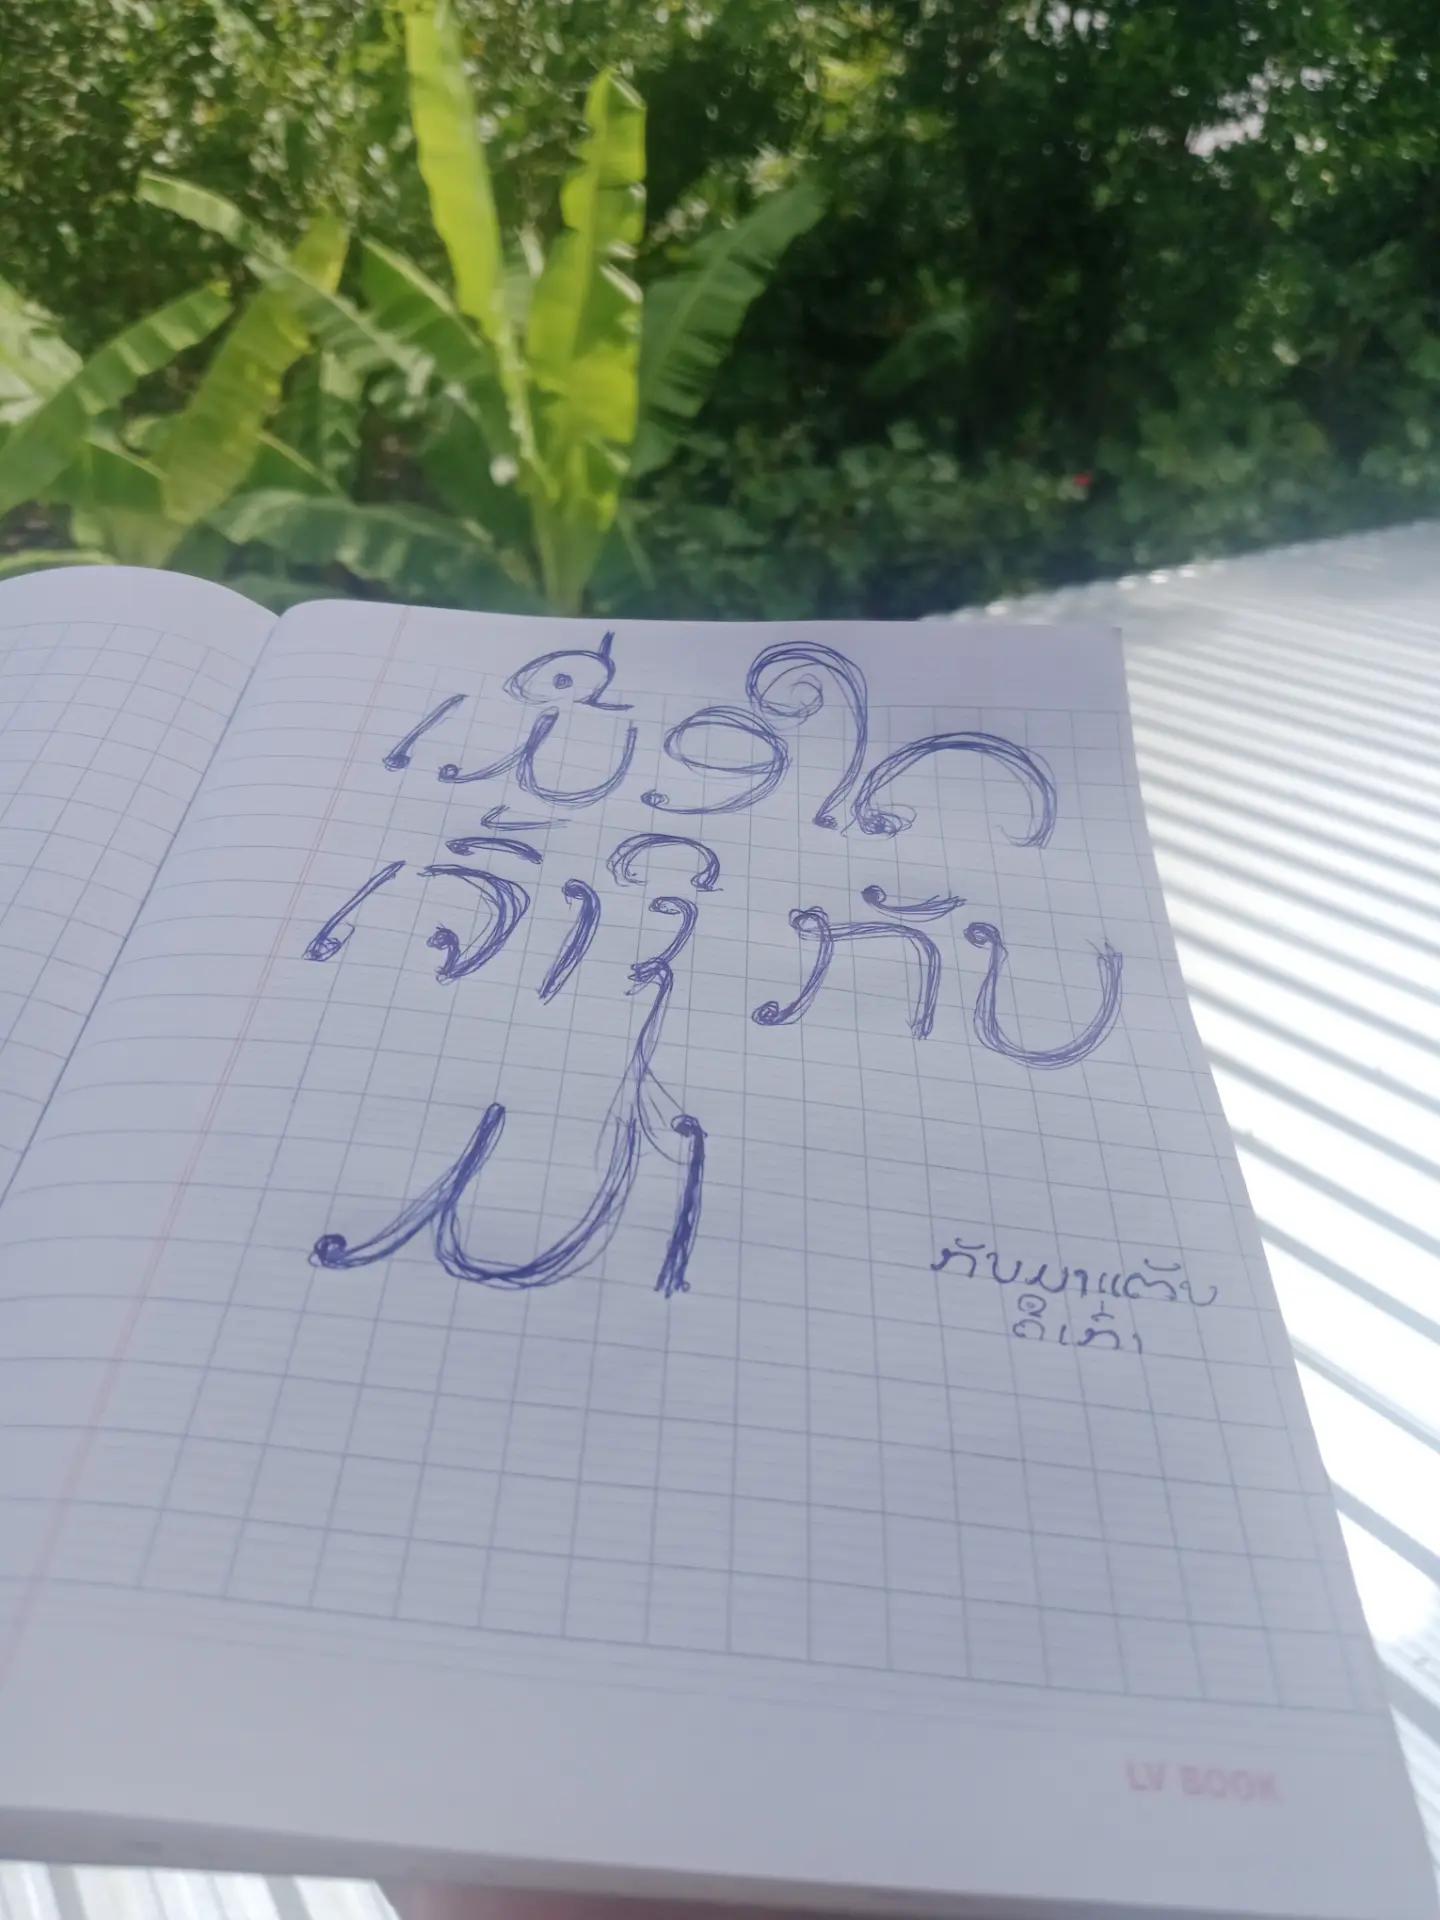 ເມື່ອໃດ
ເຈົ້າຈິ່ງ ກັບ
ມາ
ກັບມາແຕ້ບ
ຄິເກົ່າ
LV BOOK